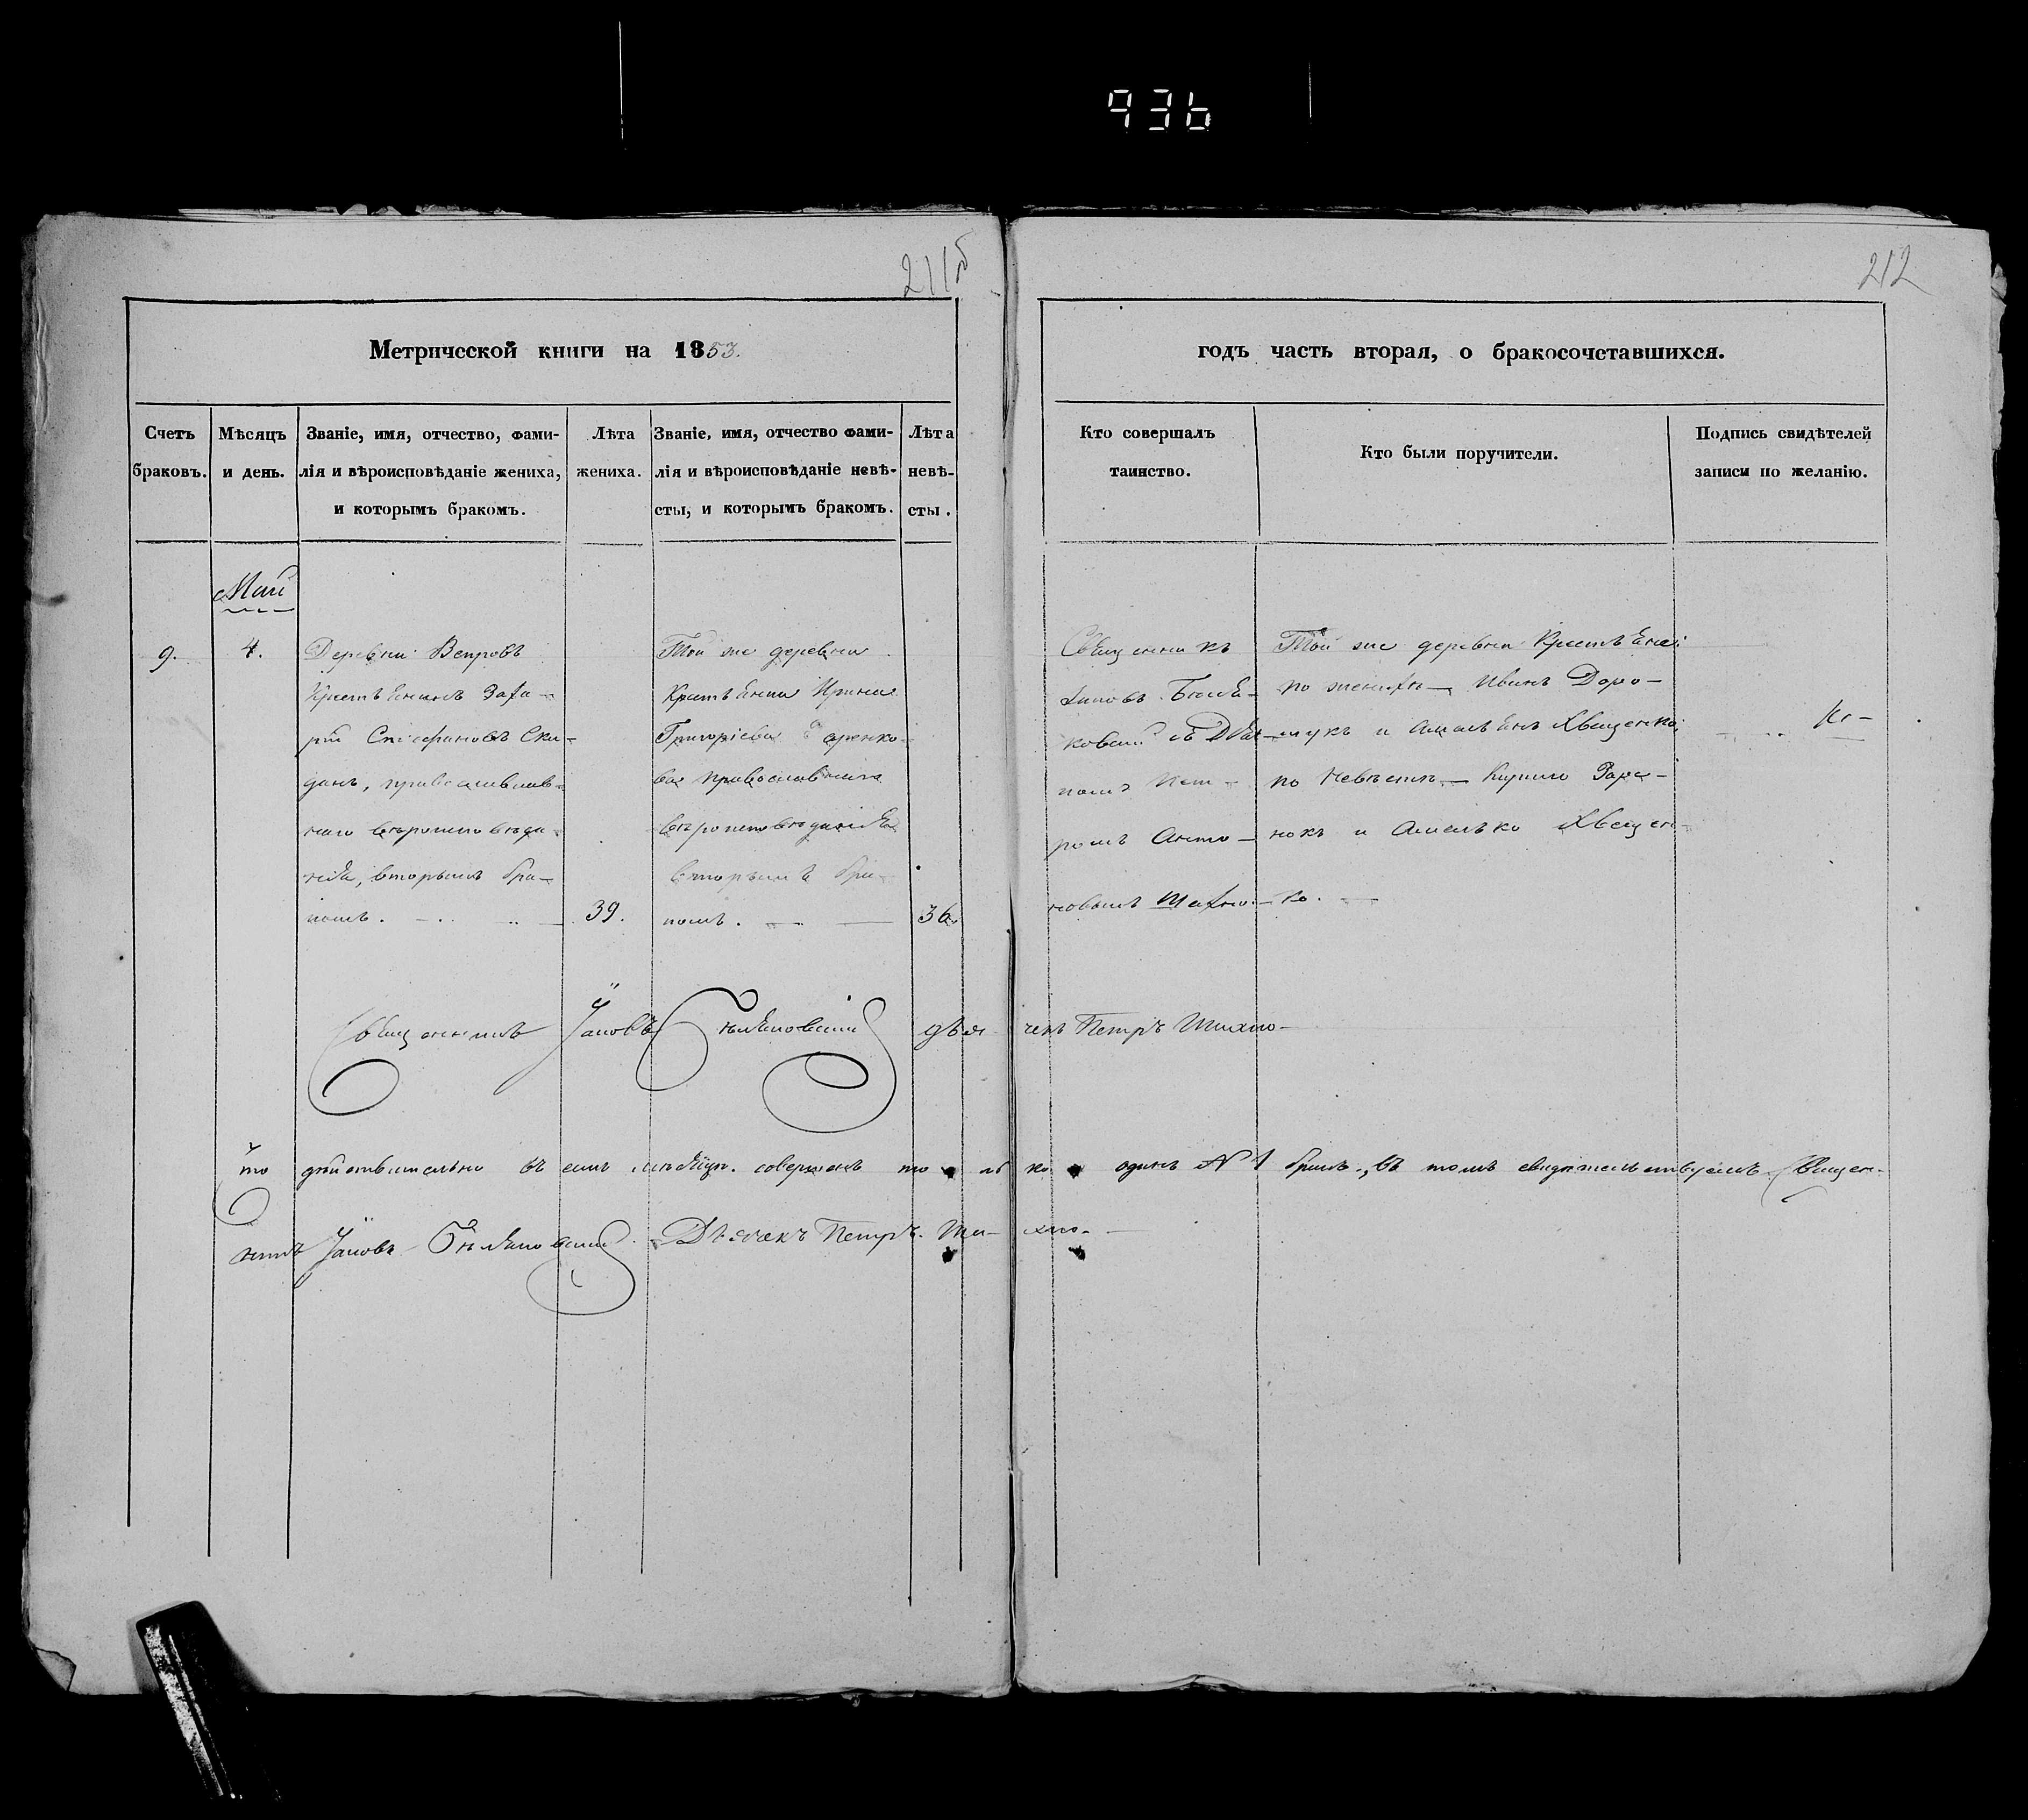 936
211б
212
Метрической книги на 1853.
годъ часть вторая, о бракосочетавшихся.
Счетъ браковъ.
Мѣсяцъ и день.
Званіе, имя, отчество, фами-
лія и вѣроисповѣданіе жениха,
и которымъ бракомъ.
Лѣта
жениха.
Званіе, имя, отчество фами-
лія и вѣроисповѣданіе невѣ-
сты, и которымъ бракомъ.
Лѣта
невѣ-
сты.
Кто совершалъ
таинство.
Кто были поручители.
Подпись свидѣтелей
записи по желанію.
Май
9.
4.
Деревни Вепровъ
Крестьянинъ Заха-
рій Стефановъ Ски-
данъ, православ-
наго вѣроисповѣда-
нія, вторымъ бра-
комъ.
39.
Той же деревни
Крестьянка Ирина
Григоріева
православнаго
вѣроисповѣданія
вторымъ бра-
комъ.
36.
Священникъ
Іаковъ Бѣля-
ковскій съ Дья-
комъ Пет-
ромъ Анто-
новымъ Махно-
Той же деревни Крестьяне:
по женихѣ — Иванъ Доро-
шукъ и Амельянъ Хвещенко;
по невѣстѣ — Кирило Зара-
нокъ и Амелько Хвещен-
ко.
Священникъ Іаковъ Бѣляковскій дьячекъ Петръ Михно
Что дѣйствительно въ семъ мѣсяцѣ совершенъ только одинъ № 1 бракъ, въ томъ свидѣтельствуемъ Священ-
никъ Іаковъ Бѣляковскій Дьячекъ Петръ Михно